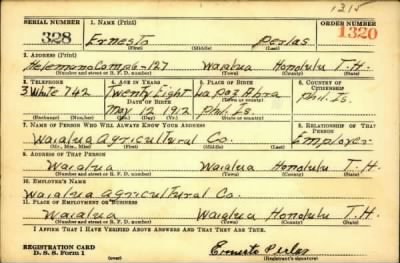 1315
SERIAL NUMBER 1. NAME (Print) ORDER NUMBER
328 Ernesto Perlas 1320
(First) (Middle) (Last)
2. ADDRESS (Print)
Helemano Camp 6-127 Waialua Honolulu T.H.
(Number and street or R. F. D. number) (Town) (County) (State)
3. TELEPHONE 4. AGE IN YEARS 5. PLACE OF BIRTH 6. COUNTRY OF CITIZENSHIP
3 White 742 Twenty Eight La Paz Abra Phil. Is.
DATE OF BIRTH (Town or county)
May 12 1912 Phil. Is.
(Exchange) (Number) (Mo.) (Day) (Yr.) (State or country)
7. NAME OF PERSON WHO WILL ALWAYS KNOW YOUR ADDRESS 8. RELATIONSHIP OF THAT PERSON
Waialua Agricultural Co. Employer
(Mr., Mrs., Miss) (First) (Middle) (Last)
9. ADDRESS OF THAT PERSON
Waialua Waialua Honolulu T.H.
(Number and street or R. F. D. number) (Town) (County) (State)
10. EMPLOYER'S NAME
Waialua Agricultural Co.
11. PLACE OF EMPLOYMENT OR BUSINESS
Waialua Waialua Honolulu T.H.
(Number and street or R. F. D. number) (Town) (County) (State)
I AFFIRM THAT I HAVE VERIFIED ABOVE ANSWERS AND THAT THEY ARE TRUE.
REGISTRATION CARD
D. S. S. Form 1 Ernesto Perlas
(over) (Registrant's signature)